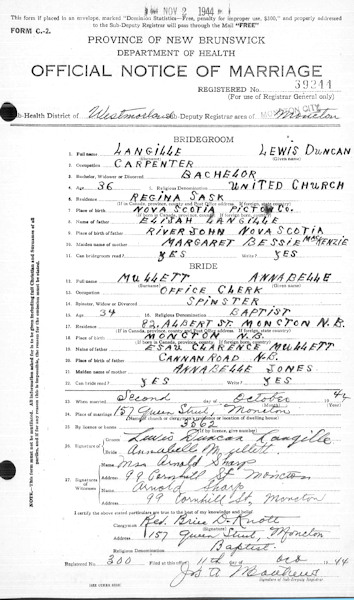 NOV 2 1944
This form if placed in an envelope, marked "Dominion Statistics—Free, penalty for improper use, $300," and properly addressed
to the Sub-Deputy Registrar will pass through the Mail "FREE"
FORM C.-2.
PROVINCE OF NEW BRUNSWICK
DEPARTMENT OF HEALTH
OFFICIAL NOTICE OF MARRIAGE
REGISTERED NO. 39244
(For use of Registrar General only)
Sub-Health District of Westmorland Sub-Deputy Registrar area of MONCTON CITY Moncton
BRIDEGROOM
1. Full name LANGILLE LEWIS DUNCAN
(Surname) (Given name)
2. Occupation CARPENTER
3. Bachelor, Widower or Divorced BACHELOR
4. Age 36 5. Religious Denomination UNITED CHURCH
6. Residence REGINA SASK
7. Place of birth NOVA SCOTIA PICTOU CO.
8. Name of father ELIJAH LANGILLE
9. Place of birth of father RIVER JOHN NOVA SCOTIA
10. Maiden name of mother MARGARET BESSIE MACKENZIE
11. Can bridegroom read? YES Write? YES
BRIDE
12. Full name MULLETT ANNABELLE
(Surname) (Given name)
13. Occupation OFFICE CLERK
14. Spinster, Widow or Divorced SPINSTER
15. Age 34 16. Religious Denomination BAPTIST
17. Residence 82 ALBERT ST. MONCTON N.B.
18. Place of birth MONCTON N.B.
19. Name of father ESAU CLARENCE MULLETT
20. Place of birth of father CANNAN ROAD N.B.
21. Maiden name of mother ANNABELLE JONES
22. Can bride read? YES Write? YES
23. When married Second day of October 1944
24. Place of marriage 157 Queen Street, Moncton
25. By license or banns 3562
(If by license, give number)
26. Signature of Groom Lewis Duncan Langille
Annabell Mullett
27. Signature of Witnesses Mrs Arnold Sharp
99 Cornhill St. Moncton
Arnold Sharp
99 Cornhill St, Moncton
I certify the above stated particulars are true to the best of my knowledge and belief
Clergyman Rev. Brice D. Knott
157 Queen Street, Moncton
Religious Denomination Baptist
Registered No. 300 Filed at this office 11th day of Oct 1944
Signature of Sub-Deputy Registrar
NOTE.—This form must not be mutilated. All information asked for is to be given including full Christian and Surnames of all